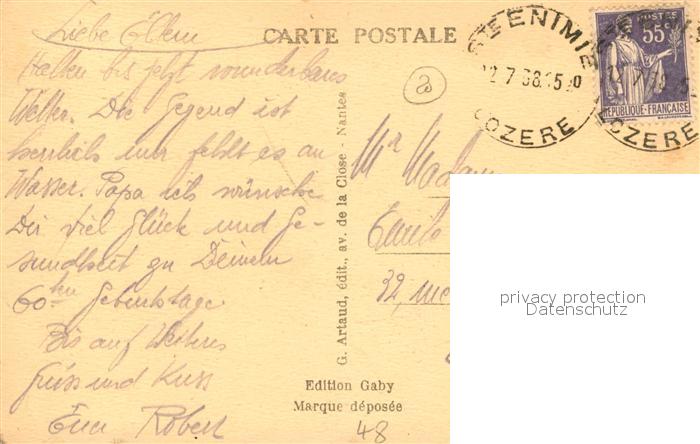 Liebe Eltern
CARTE POSTALE
Hatten bis jetzt wunderbares
Wetter. Die Gegend ist
herrlich nur fehlt es an
Wasser. Papa ich wünsche
Dir viel Glück und Ge-
sundheit zu Deinem
60ten Geburtstage
Bis auf Weiteres
Gruss und Kuss
Euer Robert
STE ENIMIE
12 7 38
LOZERE
POSTES
55c
REPUBLIQUE FRANÇAISE
STE ENIMIE
LOZERE
G. Artaud, édit., av. de la Close - Nantes
Mr Madame
Emile
32, rue
privacy protection
Datenschutz
Edition Gaby
Marque déposée
48